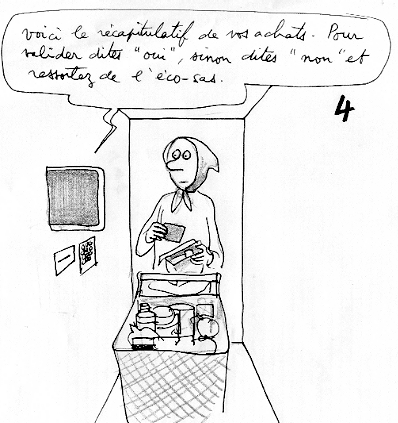 voici le récapitulatif de vos achats. Pour
valider dites "oui", sinon dites "non" et
ressortez de l'éco-sas.
4